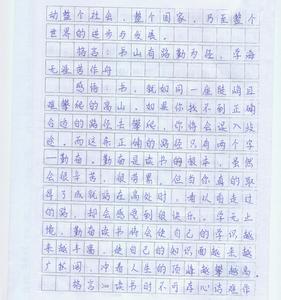 动整个社会，整个国家，乃至整个
世界的进步与发展。
格言：书山有路勤为径，学海
无涯苦作舟
感悟：书，就如同一座陡峭且
难攀爬的高山，如果你找不到正确
合适的路径去攀爬，你将会误入歧
途，而这条正确的路径只有两个字
—勤奋，勤奋是读书的根本，虽然
会很辛苦，很劳累，但当你真的取
得了成就站在高处时，看以前走过
的路，却会感觉到很快乐。学无止
境，勤奋读书将会使自己的学识越
来越丰富，使自己的知识面越来越
广长阔，冲着人生的顶峰越攀越高。
格言：读书时不可存心诘难作